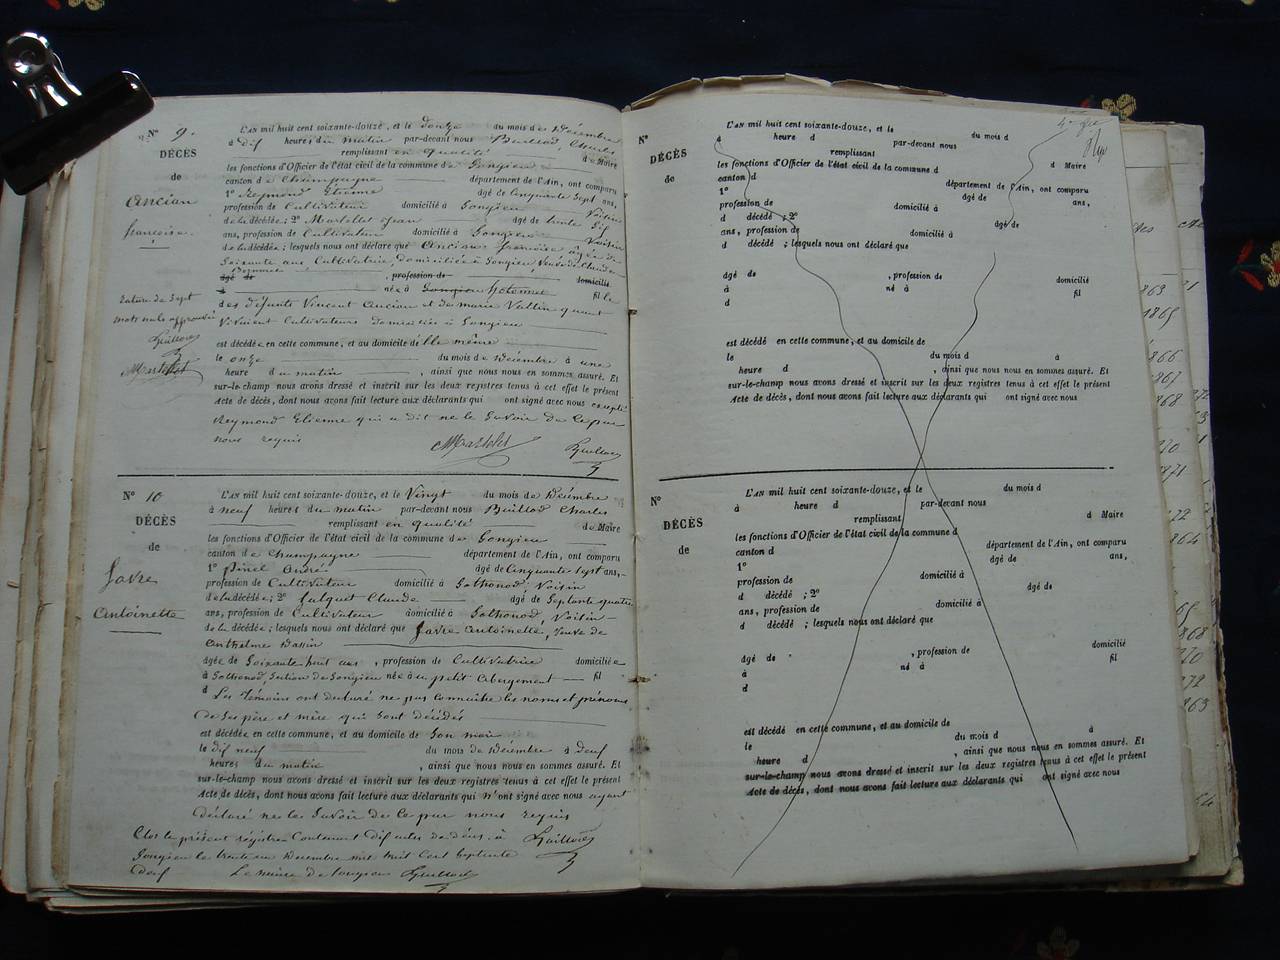 N° 9.
DÉCÈS
de
Ancian
françoise.
L'AN mil huit cent soixante-douze, et le douze du mois de Décembre
à dix heures du matin par-devant nous Buillod Charles
remplissant en qualité de Maire
les fonctions d'Officier de l'état civil de la commune de Songieu
canton de Champagne département de l'Ain, ont comparu
1° Reymond Etienne âgé de Cinquante Sept ans,
profession de Cultivateur domicilié à Songieu Voisin
de la décédée ; 2° Martellet Jean âgé de trente Six
ans, profession de Cultivateur domicilié à Songieu Voisin
de la décédée ; lesquels nous ont déclaré que Ancian françoise âgée de
Soixante ans Cultivatrice, domiciliée à Songieu, Veuve de Claude
âgé de , profession de domicilié
à né à Songieu hotonnes fille
des défunts Vincent Ancian et de marie Vallin quand
Vivaient Cultivateurs domiciliés à Songieu
est décédée en cette commune, et au domicile d'elle même
le onze du mois de Décembre à une
heure du matin , ainsi que nous nous en sommes assuré. Et
sur-le-champ nous avons dressé et inscrit sur les deux registres tenus à cet effet le présent
Acte de décès, dont nous avons fait lecture aux déclarants qui ont signé avec nous excepté
Reymond Etienne qui a dit ne le Savoir de ce par
nous requis
Rature de Sept
mots nuls approuvée
N° 10
DÉCÈS
de
favre
Antoinette
L'AN mil huit cent soixante-douze, et le Vingt du mois de Décembre
à neuf heures du matin par-devant nous Buillod Charles
remplissant en qualité de Maire
les fonctions d'Officier de l'état civil de la commune de Songieu
canton de Champagne département de l'Ain, ont comparu
1° Pinel André âgé de Cinquante Sept ans,
profession de Cultivateur domicilié à Sothonod, Voisin
de la décédée ; 2° Julquet Claude âgé de Septante quatre
ans, profession de Cultivateur domicilié à Sothonod, Voisin
de la décédée ; lesquels nous ont déclaré que favre Antoinette, Veuve de
Anthelme
âgée de Soixante huit ans , profession de Cultivatrice domiciliée
à Sothonod Section de Songieu née à au petit Abergement fil
d Les témoins ont déclaré ne pas connaître les noms et prénoms
de Ses père et mère qui Sont décédés
est décédée en cette commune, et au domicile de Son mari
le dix neuf du mois de Décembre à Deux
heures du matin , ainsi que nous nous en sommes assuré. Et
sur-le-champ nous avons dressé et inscrit sur les deux registres tenus à cet effet le présent
Acte de décès, dont nous avons fait lecture aux déclarants qui n'ont signé avec nous ayant
déclaré ne le Savoir de ce par nous requis
Clos le présent régistre Contenant Dix actes de décès à
Songieu le trente un Décembre mil huit Cent Septante
deux Le maire de Songieu
N°
DÉCÈS
de
L'AN mil huit cent soixante-douze, et le du mois d
à heure d par-devant nous
remplissant d Maire
les fonctions d'Officier de l'état civil de la commune d
canton d département de l'Ain, ont comparu
1° âgé de ans,
profession de domicilié à
d décédé ; 2° âgé de
ans, profession de domicilié à
d décédé ; lesquels nous ont déclaré que
âgé de , profession de domicilié
à né à fil
d
est décédé en cette commune, et au domicile de
le du mois d à
heure d , ainsi que nous nous en sommes assuré. Et
sur-le-champ nous avons dressé et inscrit sur les deux registres tenus à cet effet le présent
Acte de décès, dont nous avons fait lecture aux déclarants qui ont signé avec nous
N°
DÉCÈS
de
L'AN mil huit cent soixante-douze, et le du mois d
à heure d par-devant nous
remplissant d Maire
les fonctions d'Officier de l'état civil de la commune d
canton d département de l'Ain, ont comparu
1° âgé de ans,
profession de domicilié à
d décédé ; 2° âgé de
ans, profession de domicilié à
d décédé ; lesquels nous ont déclaré que
âgé de , profession de domicilié
à né à fil
d
est décédé en cette commune, et au domicile de
le du mois d à
heure d , ainsi que nous nous en sommes assuré. Et
sur-le-champ nous avons dressé et inscrit sur les deux registres tenus à cet effet le présent
Acte de décès, dont nous avons fait lecture aux déclarants qui ont signé avec nous